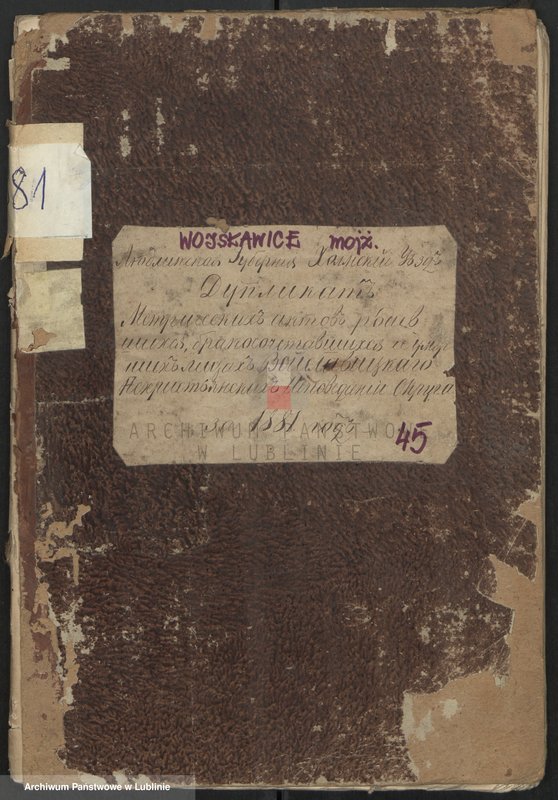 81
WOJSŁAWICE mojż.
Люблинская Губернія Холмскій Уѣздъ
Дупликатъ
Метрическихъ актовъ родив
шихся, бракосочетавшихся и умер
шихъ лицахъ Войславицкаго
Нехристіянскихъ Исповѣданій Округа
за 1881 годъ
45
ARCHIWUM PAŃSTWOWE
W LUBLINIE
Archiwum Państwowe w Lublinie